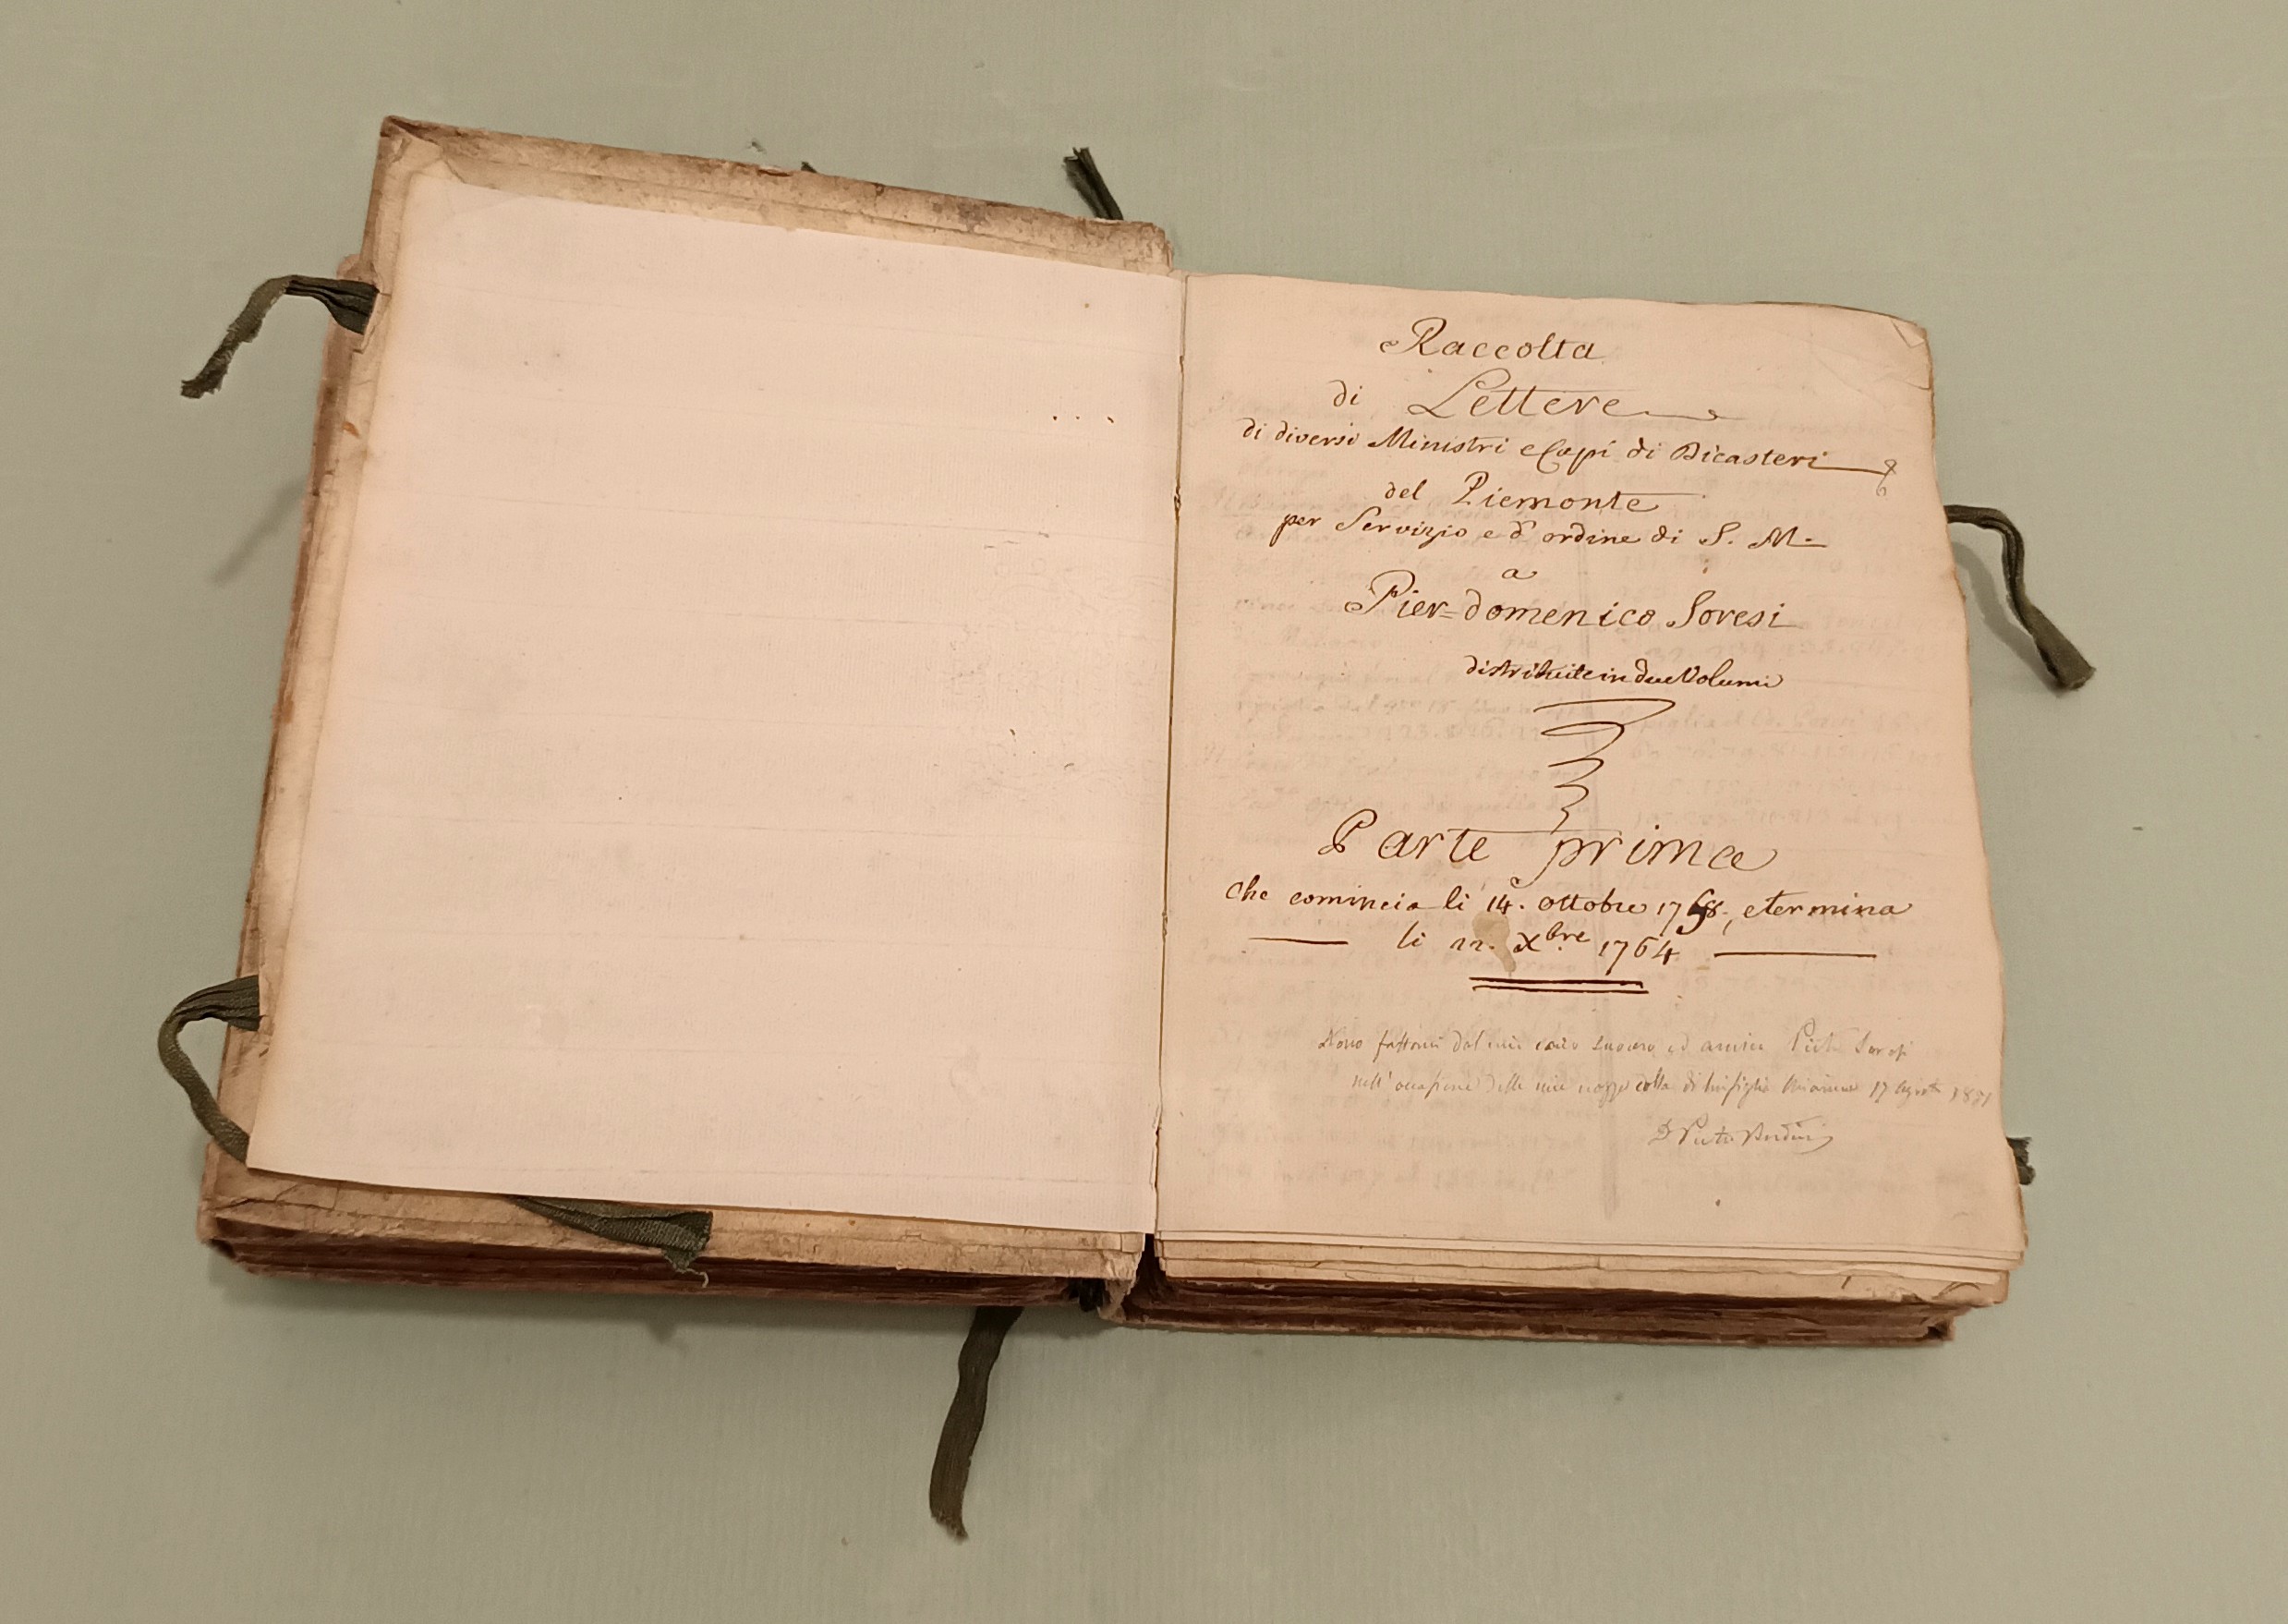 Raccolta
di Lettere
di diversi Ministri e Capi di Dicasteri
del Piemonte
per Servizio e d'ordine di S. M.
a
Pier=domenico Soresi
distribuite in due Volumi
Parte prima
che comincia li 14. Ottobre 1758, e termina
li 22. Xbre 1764
Dono fattomi dal mio caro suocero ed amico Pietro Soresi
nell'occasione delle mie nozze colla di lui figlia 17 Agosto
D Pietro